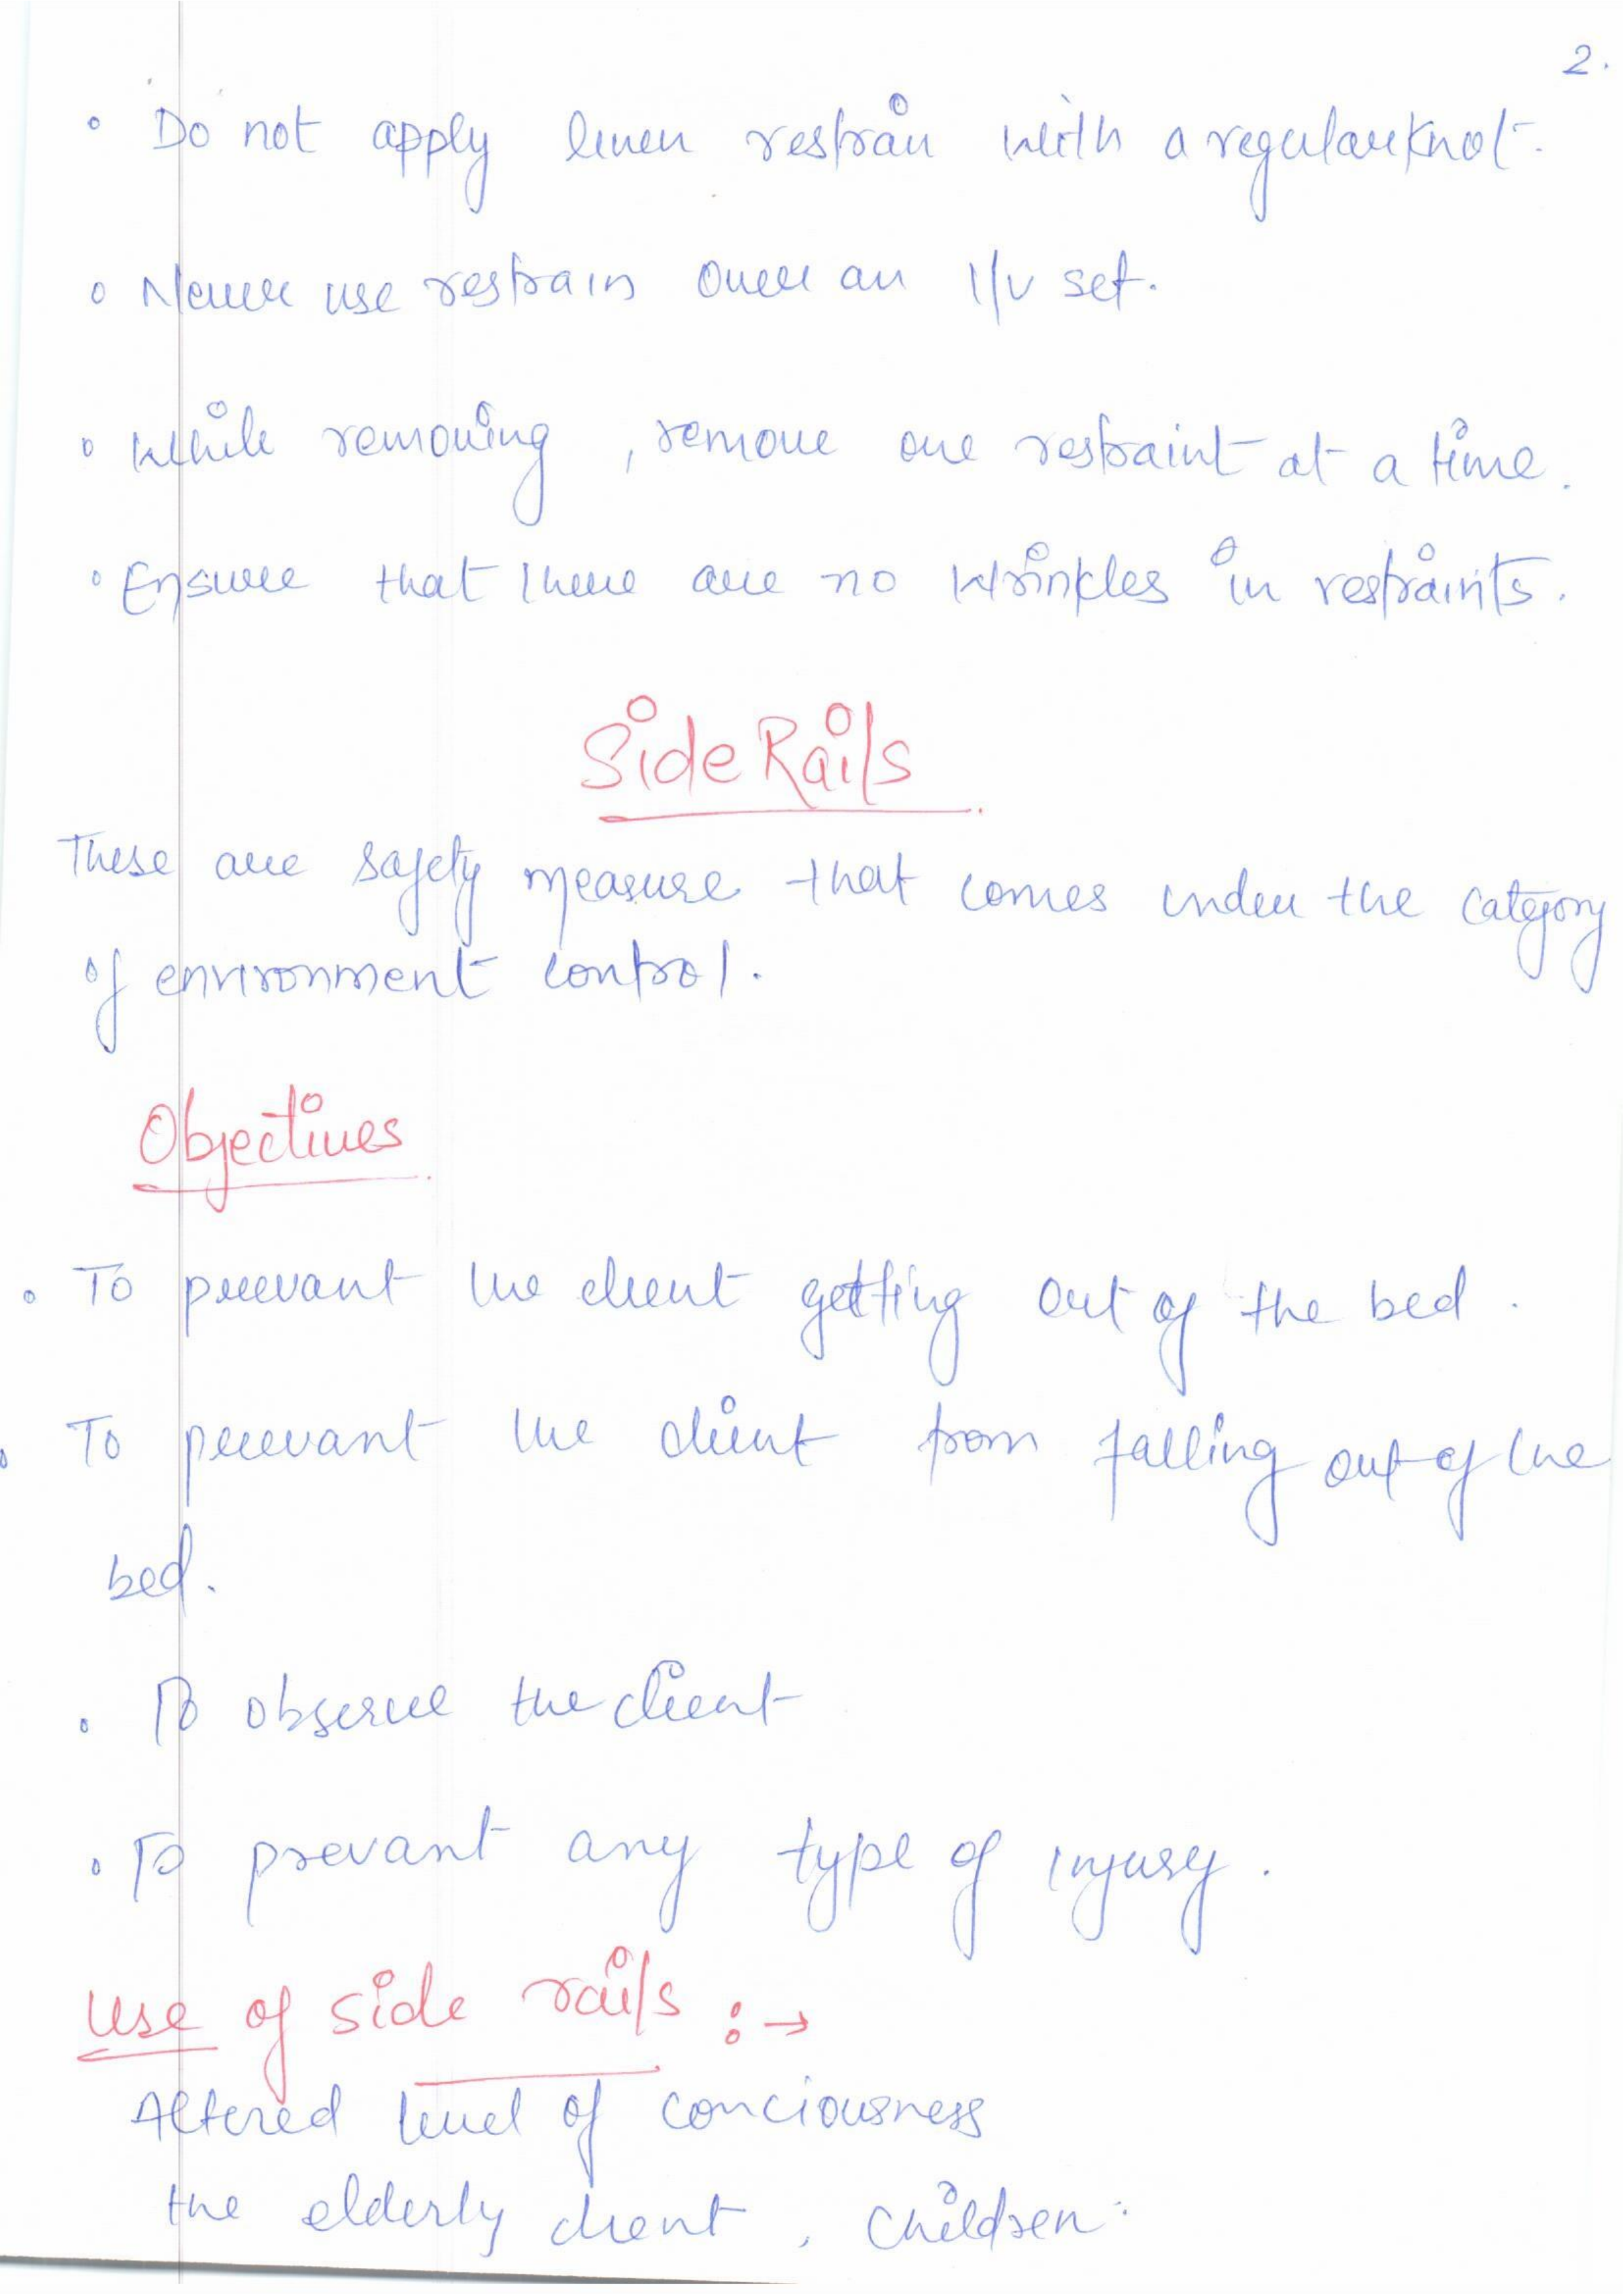 2.
• Do not apply linen restrain with a regular knot.
• Never use restrain over an I/V set.
• While removing, remove one restraint at a time.
• Ensure that there are no wrinkles in restraints.
Side Rails
These are safety measure that comes under the category
of environment control.
Objectives
• To prevant the client getting out of the bed.
• To prevant the client from falling out of the
bed.
• To observe the client
• To prevant any type of injury.
Use of side rails :→
Altered level of conciousness
the elderly client, children.